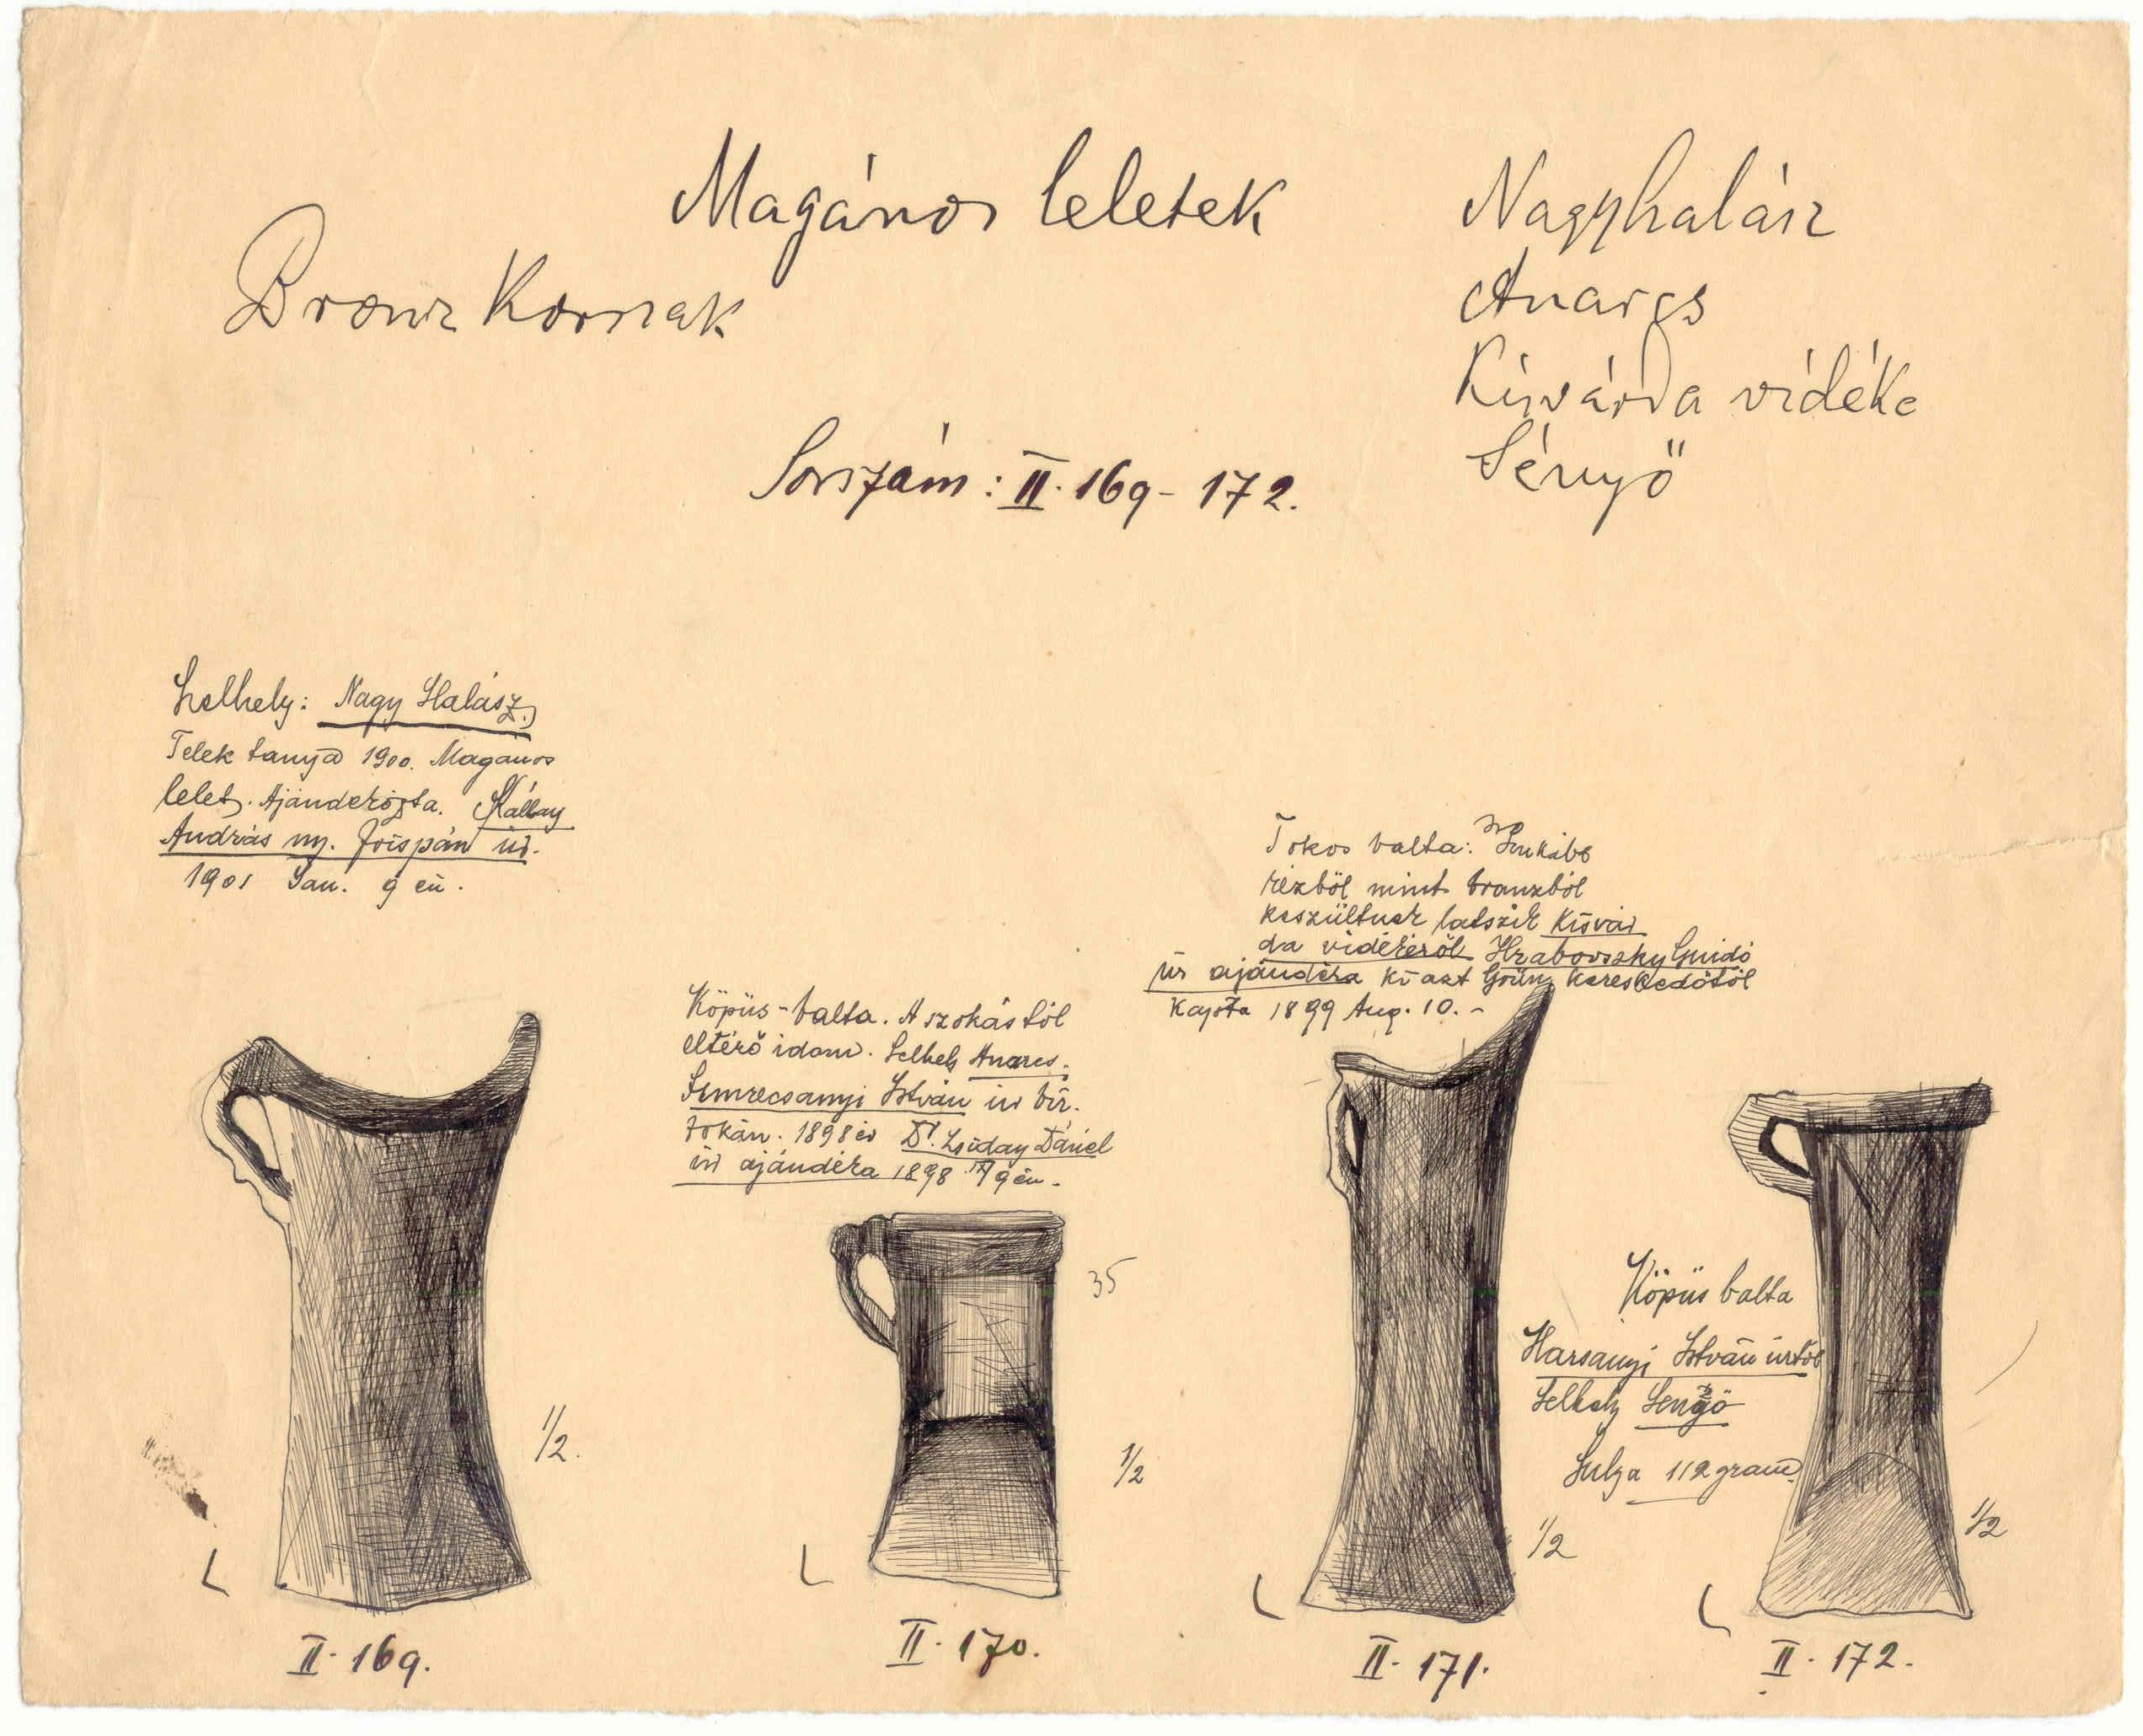 Magános leletek
Bronz Korszak
Nagyhalász
Anarcs
Kisvárda vidéke
Sényő
Sorszám: II. 169-172.
Lelhely: Nagy Halász.
Telek tanya 1900. Maganos
lelet. Ajándékozta. Kállay
András ny. főispán úr.
1901 Jan. 9 én.
Köpüs-balta. A szokástól
eltérő idom. Lelhely Anarcs.
István úr bir-
tokán. 1898 és Dr. Dániel
úr ajándéka 1898 én.
Tokos balta: Inkább
rézből mint bronzból
készültnek latszik Kisvár
da vidékéről Hrabovszky Guidó
úr ajándéka ki azt Grünz kereskedőtől
Kapta 1899 Aug. 10. -
35
Köpüs balta
Harsanyi István úrtól
Lelhely Senyö
Sulya 112 gram.
1/2.
1/2
1/2
1/2
II. 169.
II. 170.
II. 171.
II. 172.